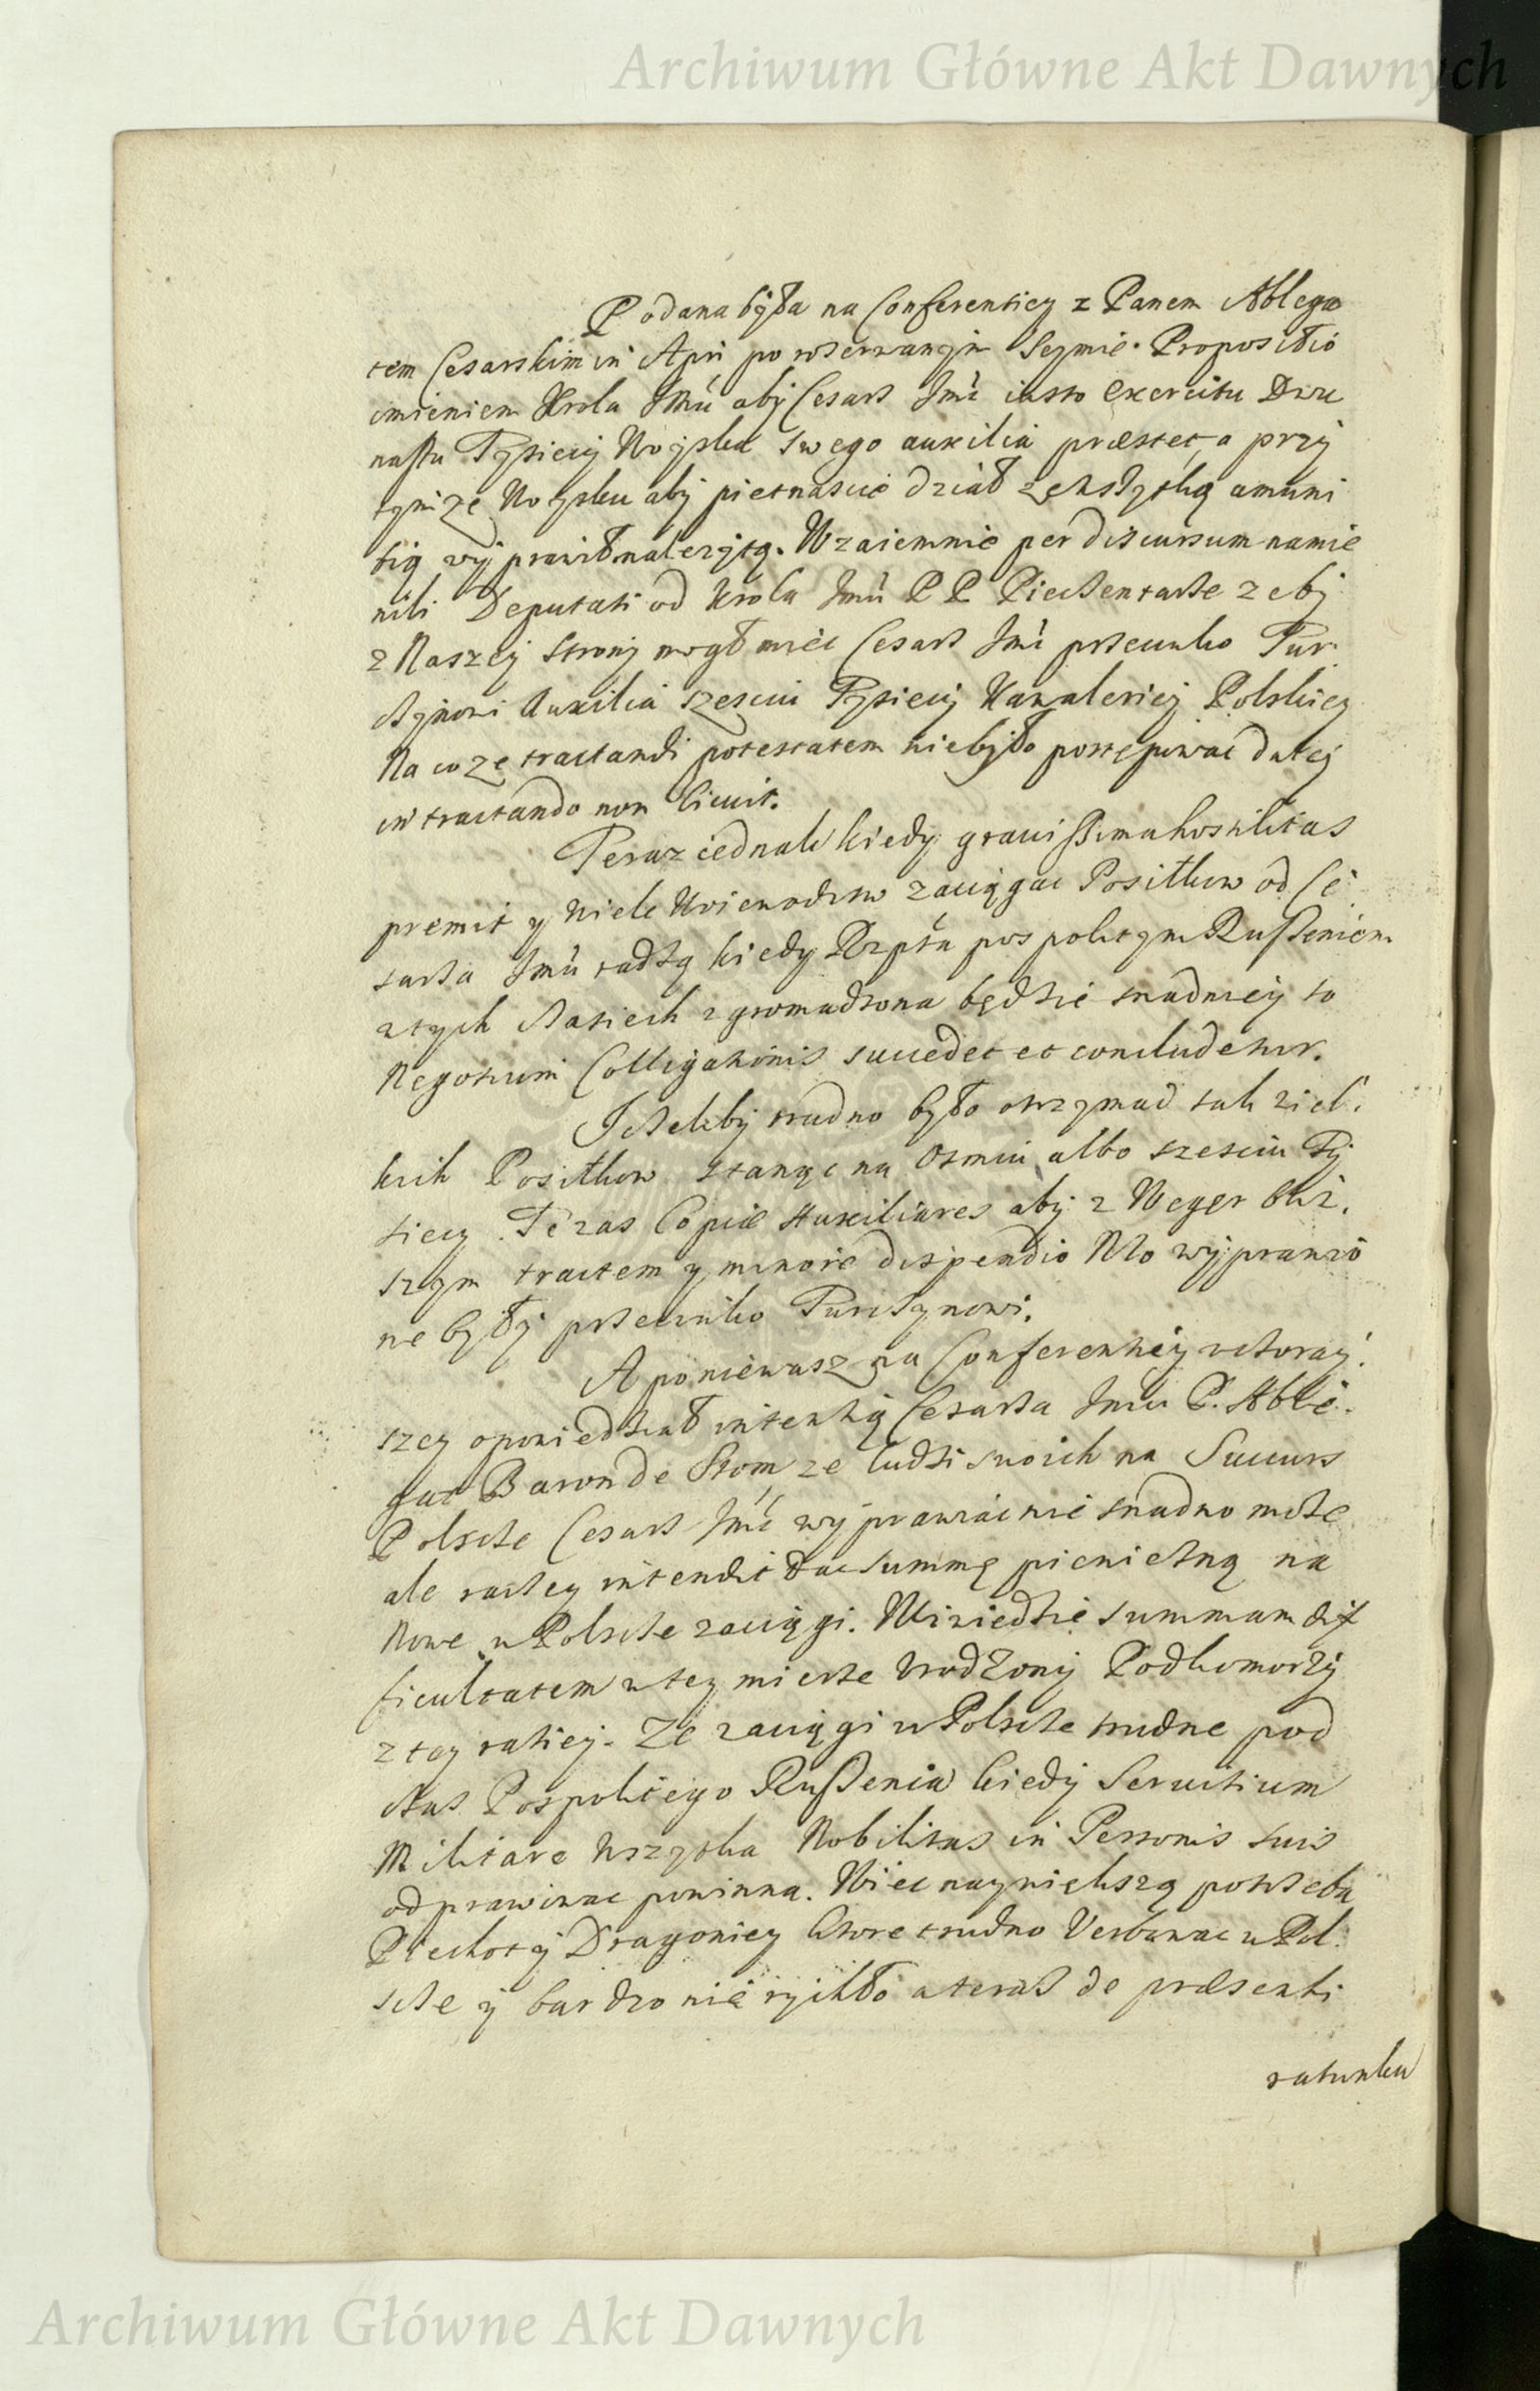 Archiwum Główne Akt Dawnych
Podana była na Conferentiey z Panem Ablega
tem Cesarskim in Apri po rozerwanym Seymie. Propositio
imieniem Krola Jmci aby Cesarz Jmć iusto exercitu Dwu
nastu Tysiecy Woyska swego auxilia præstet, a przy
tymze Woysku aby pietnascie dział ze wszytką amuni
tią wyprawił nalezytą. Wzaiemnie per discursum namie
nili Deputati od Krola Jmci P P Pieczentarze zeby
z Naszey strony mogł miec Cesarz Jmć przeciwko Tur
czynowi Auxilia szesciu Tysiecy Kawaleriey Polskiey
Na co ze tractandi potestatem nie było postępować daley
in tractando non licuit.
Teraz iednak kiedy gravissima hostilitas
premit y wiele Woiewodztw zaciągac Posiłkow od Ce
sarza Jmci radzą kiedy Rzpta pospolitym Ruszeniem
w tych czasiech zgromadzona będzie snadniey to
Negotium Colligationis succedet et concludetur.
Jezeliby trudno było otrzymac tak wiel
kich Posiłkow stanąc na osmiu albo szesciu Ty
siecy. Te zas Copiæ Auxiliares aby z Weger bliz
szym tractem y minore dispendio
ne były przeciwko Turczynowi.
A poniewasz na Conferentiey wczoray
szey opowiedział intentią Cesarza Jmci P. Able
gat Baron de Strom ze ludzi swoich na Succurs
Polszcze Cesarz Jmć wyprawiac nie snadno moze
ale raczey intendit dac summę pienięzną na
Nowe w Polszcze zaciągi. Wiziedzie summam dif
ficultatem w tey mierze Urodzony Podkomorzy
z tey ratiey. Ze zaciągi w Polszcze trudne pod
czas Pospolitego Ruszenia kiedy Servitium
Militare wszytka Nobilitas in Personis suis
odprawiwac powinna. Wiec naywiekszą potrzeba
Piechoty y Dragoniey ktore trudno Verbowac w Pol
szcze y bardzo nie rychło a teraz de præsenti
ratunku
Archiwum Główne Akt Dawnych